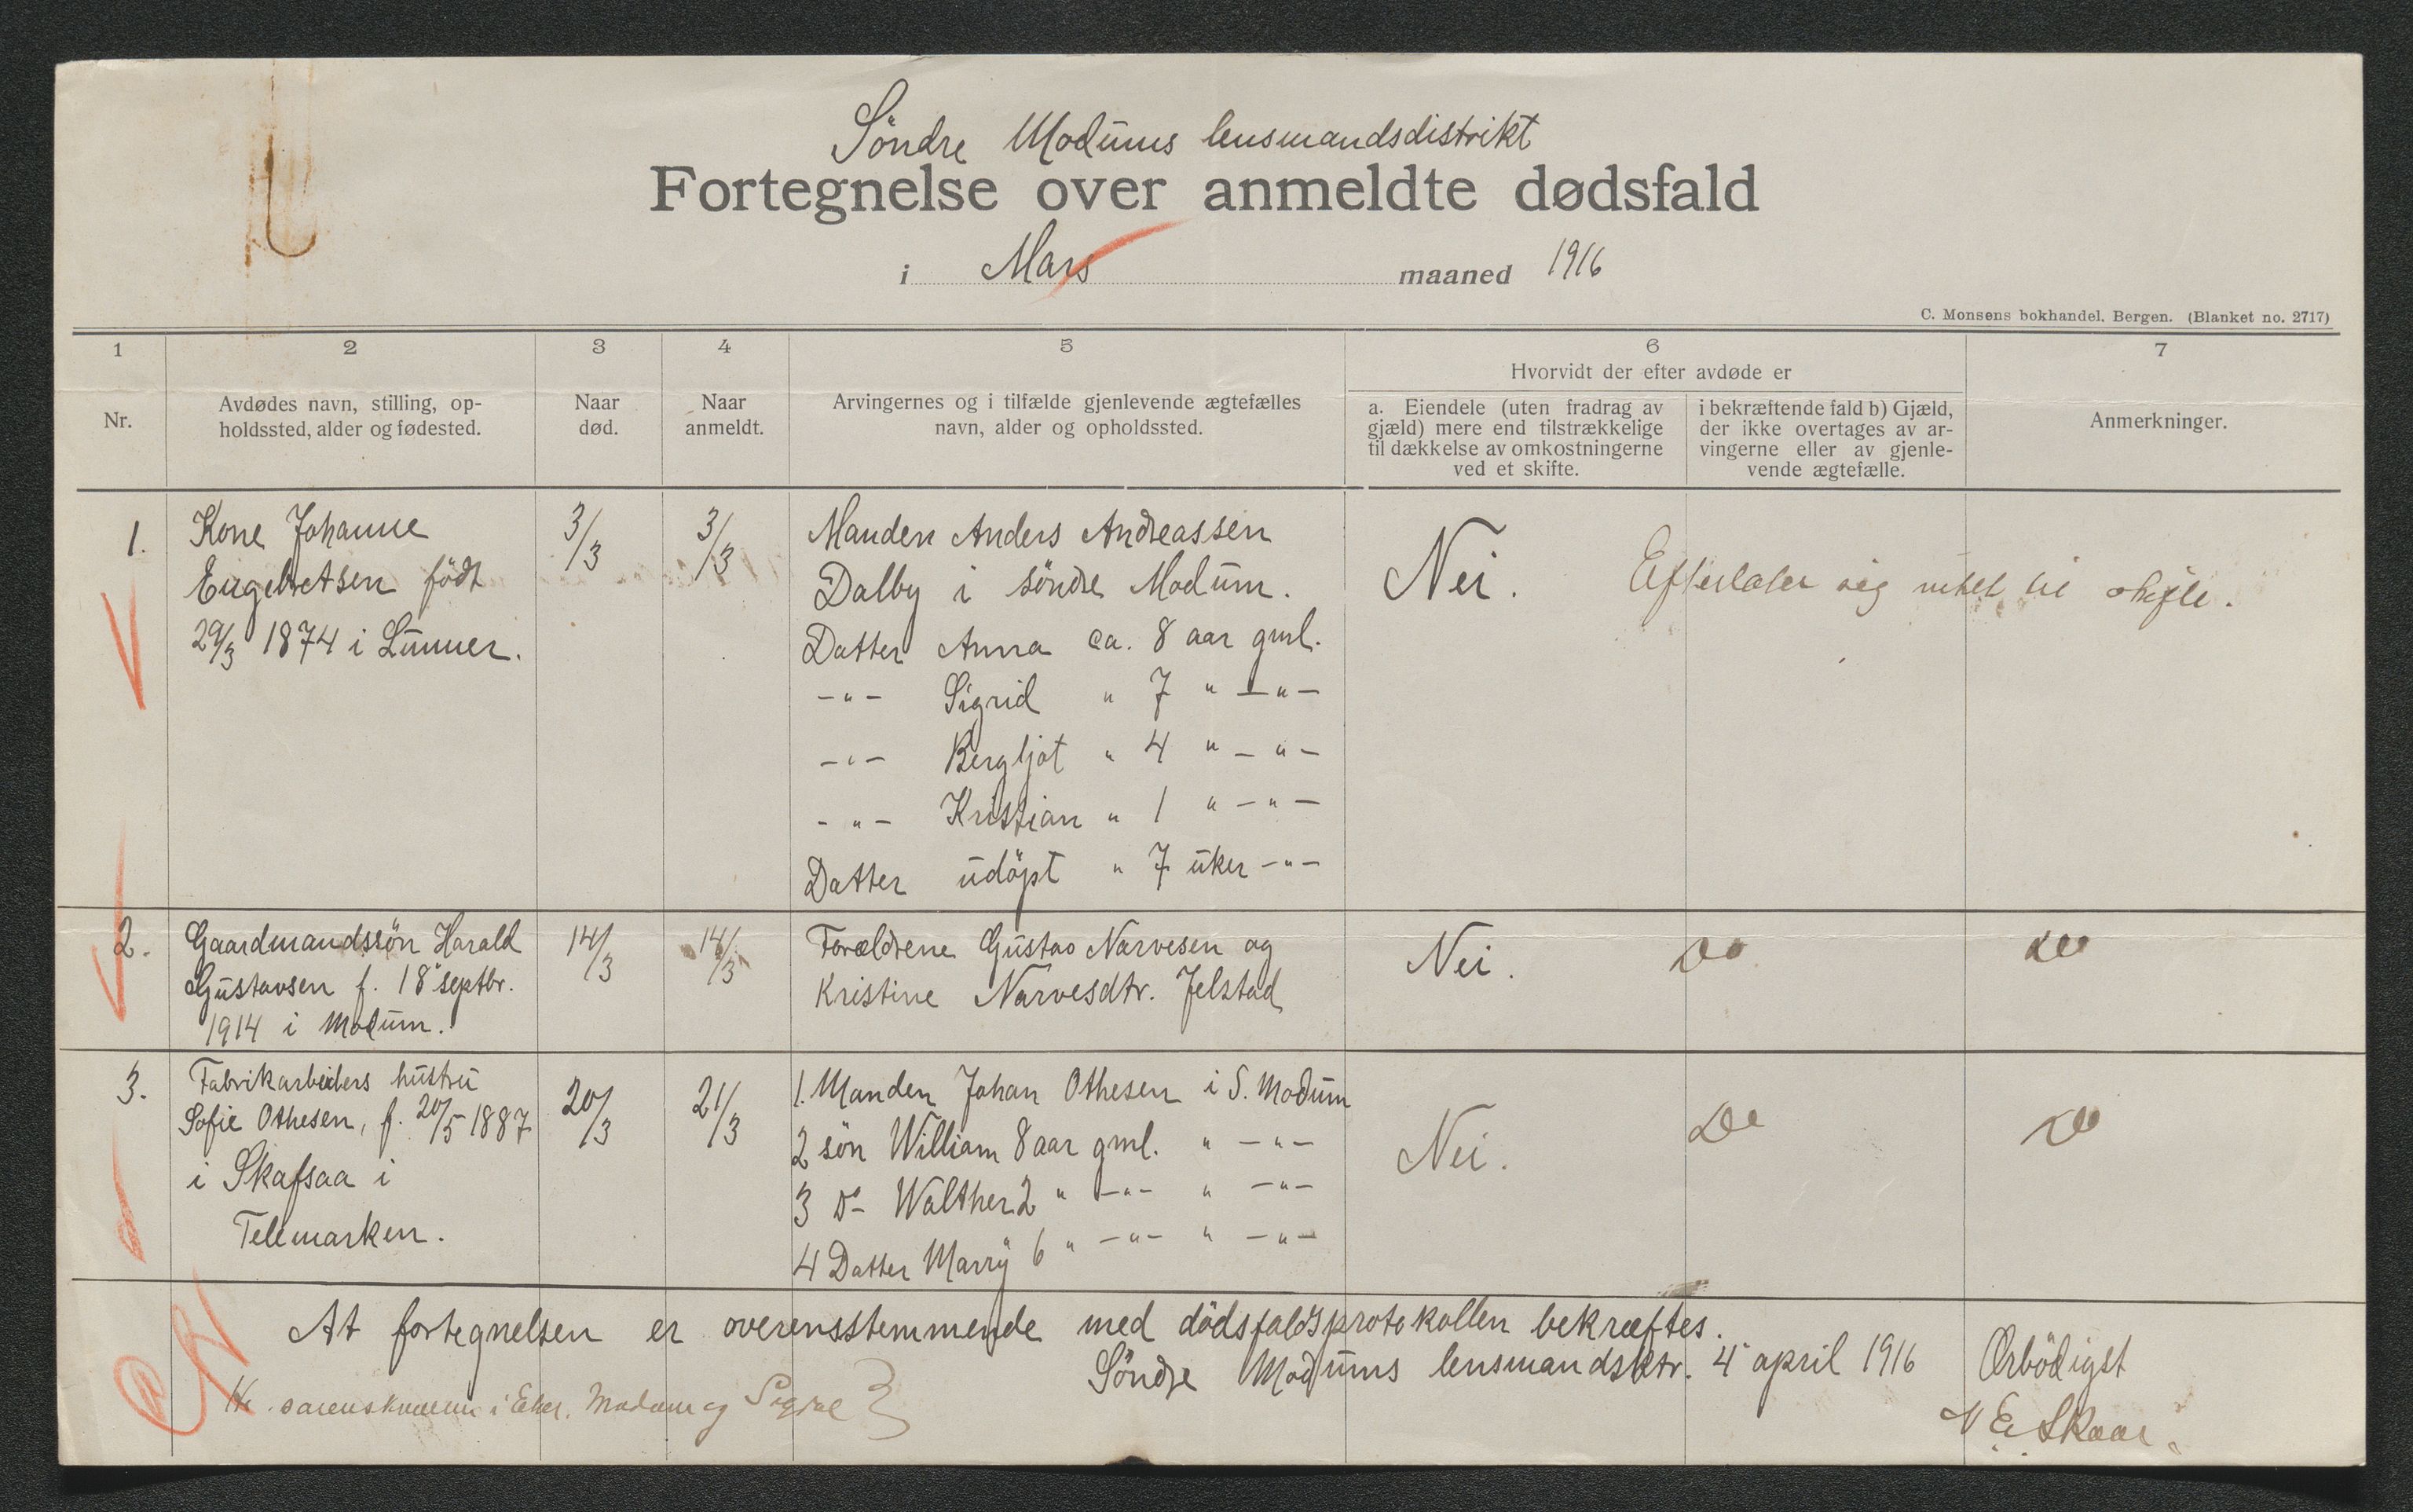 Söndre Modums lensmandsdistrikt
Fortegnelse over anmeldte dødsfald
i Mars maaned 1916
C. Monsens bokhandel. Bergen. (Blanket no. 2717)
1 2 3 4 5 6 7
Hvorvidt der efter avdøde er
Nr.
Avdødes navn, stilling, op-
holdssted, alder og fødested.
Naar
død.
Naar
anmeldt.
Arvingernes og i tilfælde gjenlevende ægtefælles
navn, alder og opholdssted.
a. Eiendele (uten fradrag av
gjæld) mere end tilstrækkelige
til dækkelse av omkostningerne
ved et skifte.
i bekræftende fald b) Gjæld,
der ikke overtages av ar-
vingerne eller av gjenle-
vende ægtefælle.
Anmerkninger.
1.
Kone Johanne
Engebretsen födt
29/3 1874 i Lunner.
3/3
3/3
Manden Anders Andreassen
Dalby i söndre Modum.
Datter Anna ca. 8 aar gml.
-"- Sigrid " 7 " -"-
-"- Bergljot " 4 " -"-
-"- Kristian " 1 " -"-
Datter udöpt " 7 uker -"-
Nei.
Efterlater sig intet til skifte.
2.
Gaardmandssön Harald
Gustavsen f. 18 septbr.
1914 i Modum.
14/3
14/3
Forældrene Gustav Narvesen og
Kristine Narvesdtr. Jelstad
Nei.
Do
Do
3.
Fabrikarbeiders hustru
Sofie Othesen, f. 20/5 1887
i Skafsaa i
Telemarken.
20/3
21/3
1. Manden Johan Othesen i S. Modum
2 sön William 8 aar gml. " -"-
3 Do Walther 2 " -"- " -"-
4 Datter Marry 6 " -"- " -"-
Nei.
Do
Do
At fortegnelsen er overensstemmende med dödsfaldsprotokollen bekræftes.
Söndre Modums lensmandsktr. 4 april 1916
Ærbödigst
Skaar
sorenskriveren i Eker, Modum og Sigdal